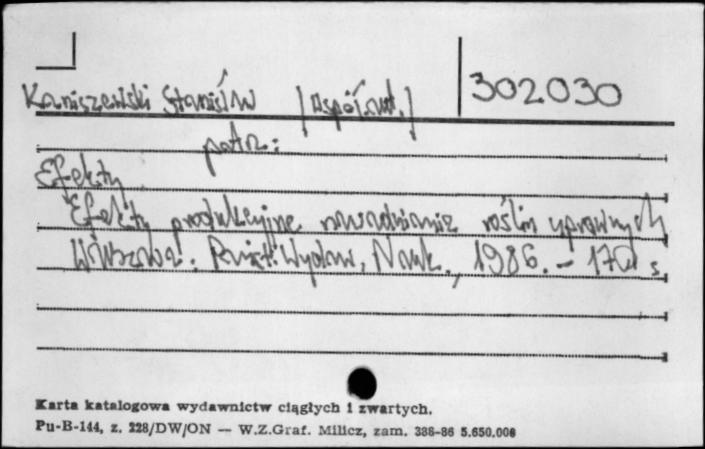 302030
Kaniszewski Stanisław [współaut.]
patrz:
Efekty
Efekty produkcyjne nawadniania roślin uprawnych
Warszawa: Państ. Wydaw. Nauk., 1986. – 170 s.
Karta katalogowa wydawnictw ciągłych i zwartych.
Pu-B-144, z. 228/DW/ON — W.Z.Graf. Milicz, zam. 388-86 5.650.000